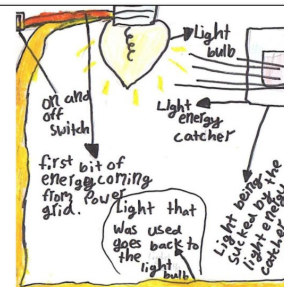 Light
bulb
on and
off
switch
Light
energy
catcher
first bit of
energy coming
from power
grid.
Light that
was used
goes back to
the light
bulb
Light being
sucked by the
light energy
catcher